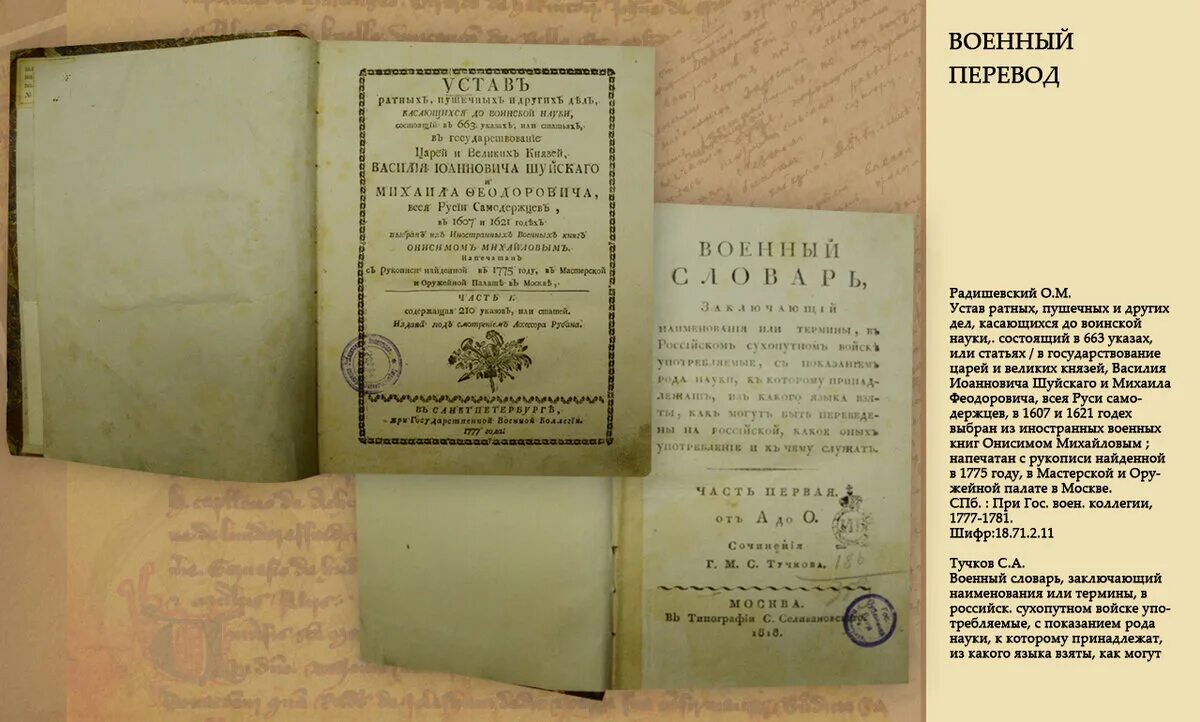 УСТАВЪ
РАТНЫХЪ, ПУШЕЧНЫХЪ И ДРУГИХЪ ДѢЛЪ,
КАСАЮЩИХСЯ ДО ВОИНСКОЙ НАУКИ,
состоящій въ 663. указахъ, или статьяхъ,
въ государствованіе
Царей и Великихъ Князей,
ВАСИЛІЯ ІОАННОВИЧА ШУЙСКАГО
и
МИХАИЛА ѲЕОДОРОВИЧА,
всея Русіи Самодержцевъ,
въ 1607 и 1621 годѣхъ
выбранъ изъ Иностранныхъ Военныхъ книгъ
ОНИСИМОМЪ МИХАЙЛОВЫМЪ.
Напечатанъ
съ Рукописи найденной въ 1775 году, въ Мастерской
и Оружейной Палатѣ въ Москвѣ,
ЧАСТЬ I.
содержащая 210 указовъ, или статей.
Издана подъ смотреніемъ Ассесора Рубана.
ВЪ САНКТПЕТЕРБУРГѢ,
при Государственной Военной Коллегіи.
1777 года.
ВОЕННЫЙ
СЛОВАРЬ,
ЗАКЛЮЧАЮЩІЙ
НАИМЕНОВАНІЯ ИЛИ ТЕРМИНЫ, ВЪ
РОССІЙСКОМЪ СУХОПУТНОМЪ ВОЙСКѢ
УПОТРЕБЛЯЕМЫЕ, СЪ ПОКАЗАНІЕМЪ
РОДА НАУКИ, КЪ КОТОРОМУ ПРИНАД-
ЛЕЖАТЪ, ИЗЪ КАКОГО ЯЗЫКА ВЗЯ-
ТЫ, КАКЪ МОГУТЪ БЫТЬ ПЕРЕВЕДЕ-
НЫ НА РОССІЙСКОЙ, КАКОЕ ОНЫХЪ
УПОТРЕБЛЕНІЕ И КЪ ЧЕМУ СЛУЖАТЪ.
ЧАСТЬ ПЕРВАЯ.
отъ А до О.
Сочиненія
Г. М. С. Тучкова.
186
МОСКВА.
Въ Типографіи С. Селивановскаго.
1818.
ВОЕННЫЙ
ПЕРЕВОД
Радишевский О.М.
Устав ратных, пушечных и других
дел, касающихся до воинской
науки,. состоящий в 663 указах,
или статьях / в государствование
царей и великих князей, Василия
Иоанновича Шуйскаго и Михаила
Феодоровича, всея Руси само-
держцев, в 1607 и 1621 годех
выбран из иностранных военных
книг Онисимом Михайловым ;
напечатан с рукописи найденной
в 1775 году, в Мастерской и Ору-
жейной палате в Москве.
СПб. : При Гос. воен. коллегии,
1777-1781.
Шифр:18.71.2.11
Тучков С.А.
Военный словарь, заключающий
наименования или термины, в
российск. сухопутном войске упо-
требляемые, с показанием рода
науки, к которому принадлежат,
из какого языка взяты, как могут